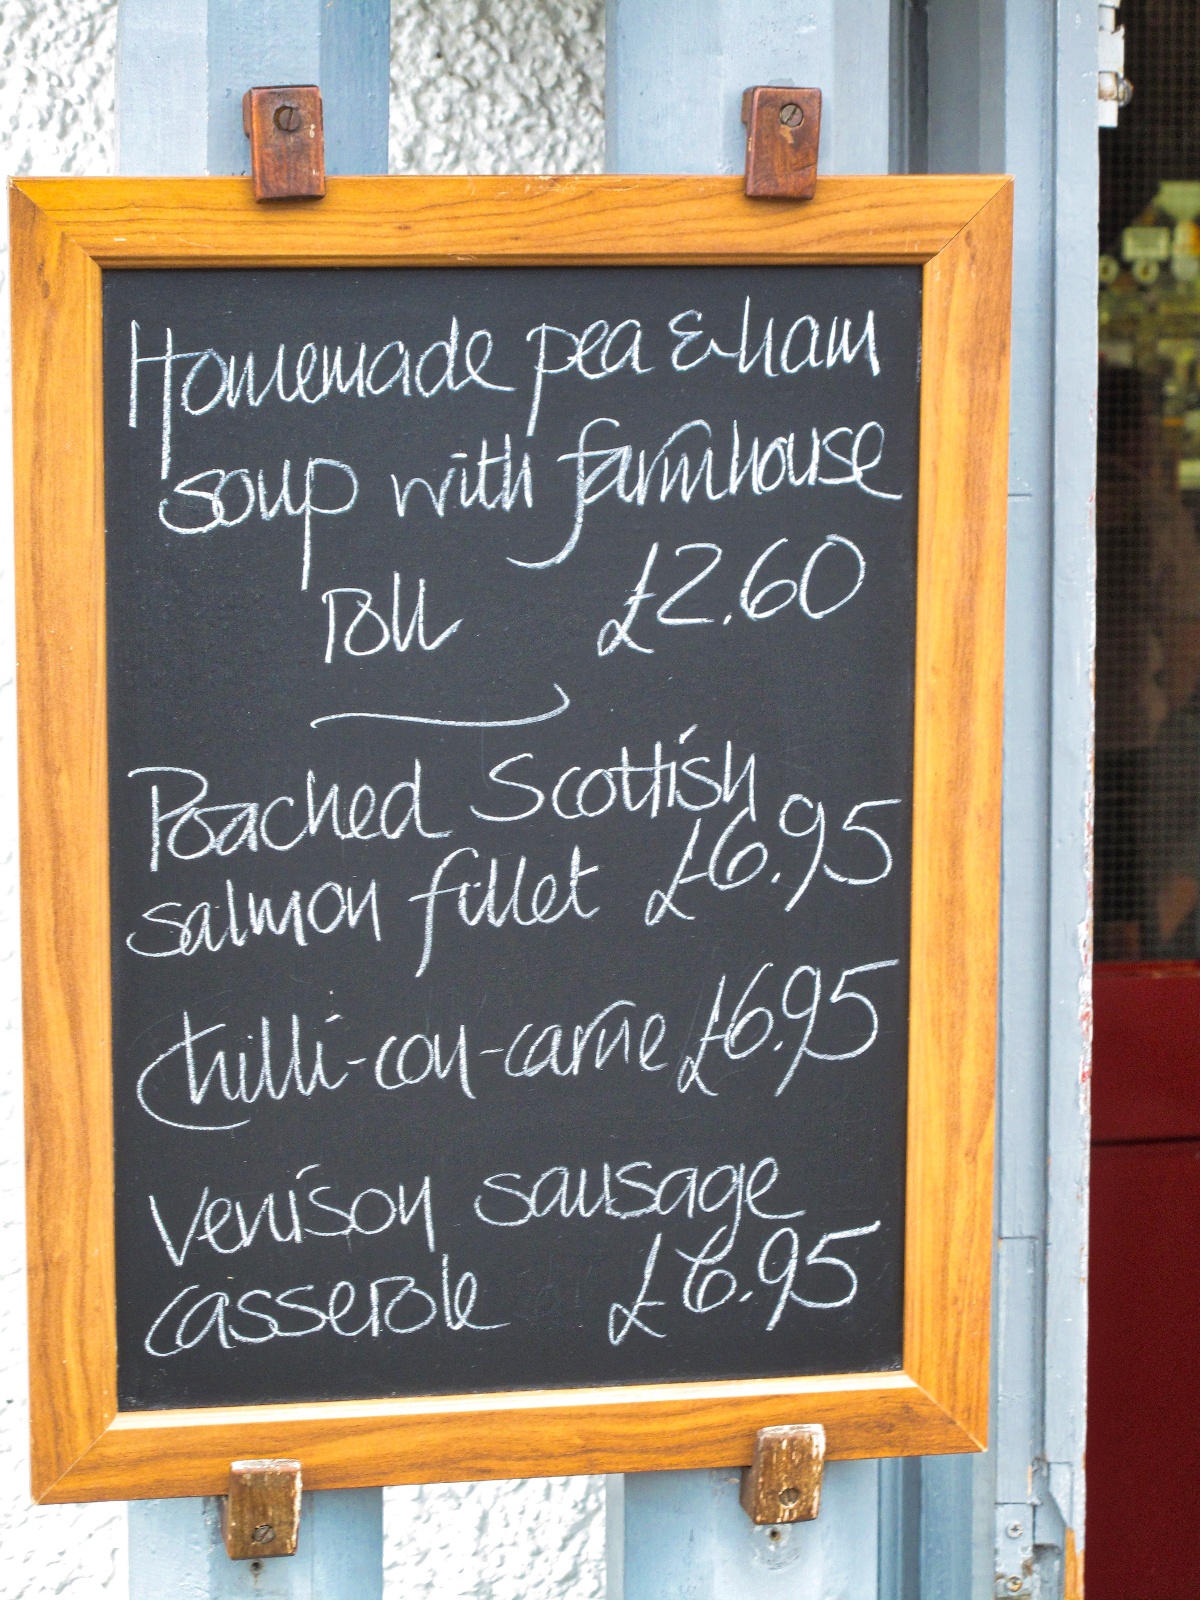 Homemade pea & ham
soup with farmhouse
roll £2.60
Poached Scottish
salmon fillet £6.95
Chilli-con-carne £6.95
Venison sausage
casserole £6.95